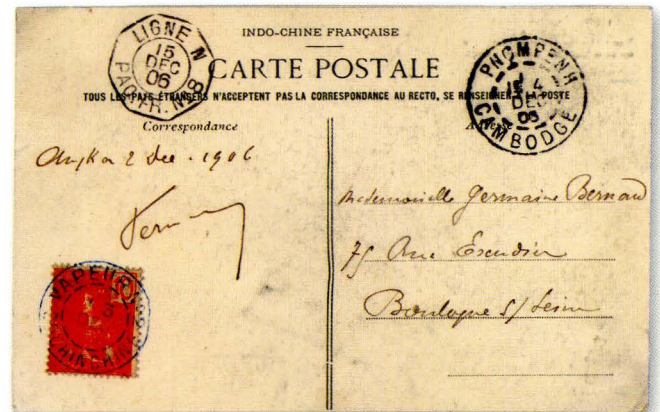 INDO-CHINE FRANÇAISE
CARTE POSTALE
TOUS LES PAYS ÉTRANGERS N'ACCEPTENT PAS LA CORRESPONDANCE AU RECTO, SE RENSEIGNER A LA POSTE
LIGNE N
15
DEC
06
PAQ. FR. Nº 8
PHOMPENH
4
DEC
06
CAMBODGE
Correspondance
Adresse
Angkor 2 Dec. 1906
Mademoiselle Germaine Bernard
75 Rue Escudier
Boulogne s/ Seine